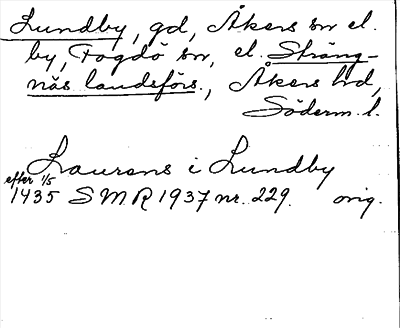 Lundby, gd, Åkers sn el.
by, Fogdö sn, el. Sträng-
näs landsförs., Åkers hd,
Söderm. l.
Laurens i Lundby
efter 1/5
1435 SMR 1937 nr. 229. orig.